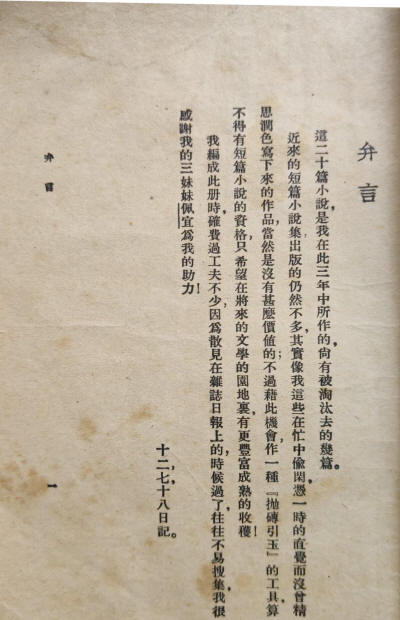 弁言
這二十篇小說，是我在此三年中所作的，尙有被淘汰去的幾篇。
近來的短篇小說集出版的仍然不多，其實像我這些在忙中偸閑，憑一時的直覺而沒曾精
思潤色寫下來的作品，當然是沒有甚麼價值的；不過藉此機會，作一種『拋磚引玉』的工具，算
不得有短篇小說的資格，只希望在將來的文學的園地裏，有更豐富成熟的收穫！
我編成此册時，確費過工夫不少，因爲散見在雜誌日報上的，時候過了，往往不易搜集，我很
感謝我的三妹妹佩宜爲我的助力！
十二，七，十八日記。
弁言
一